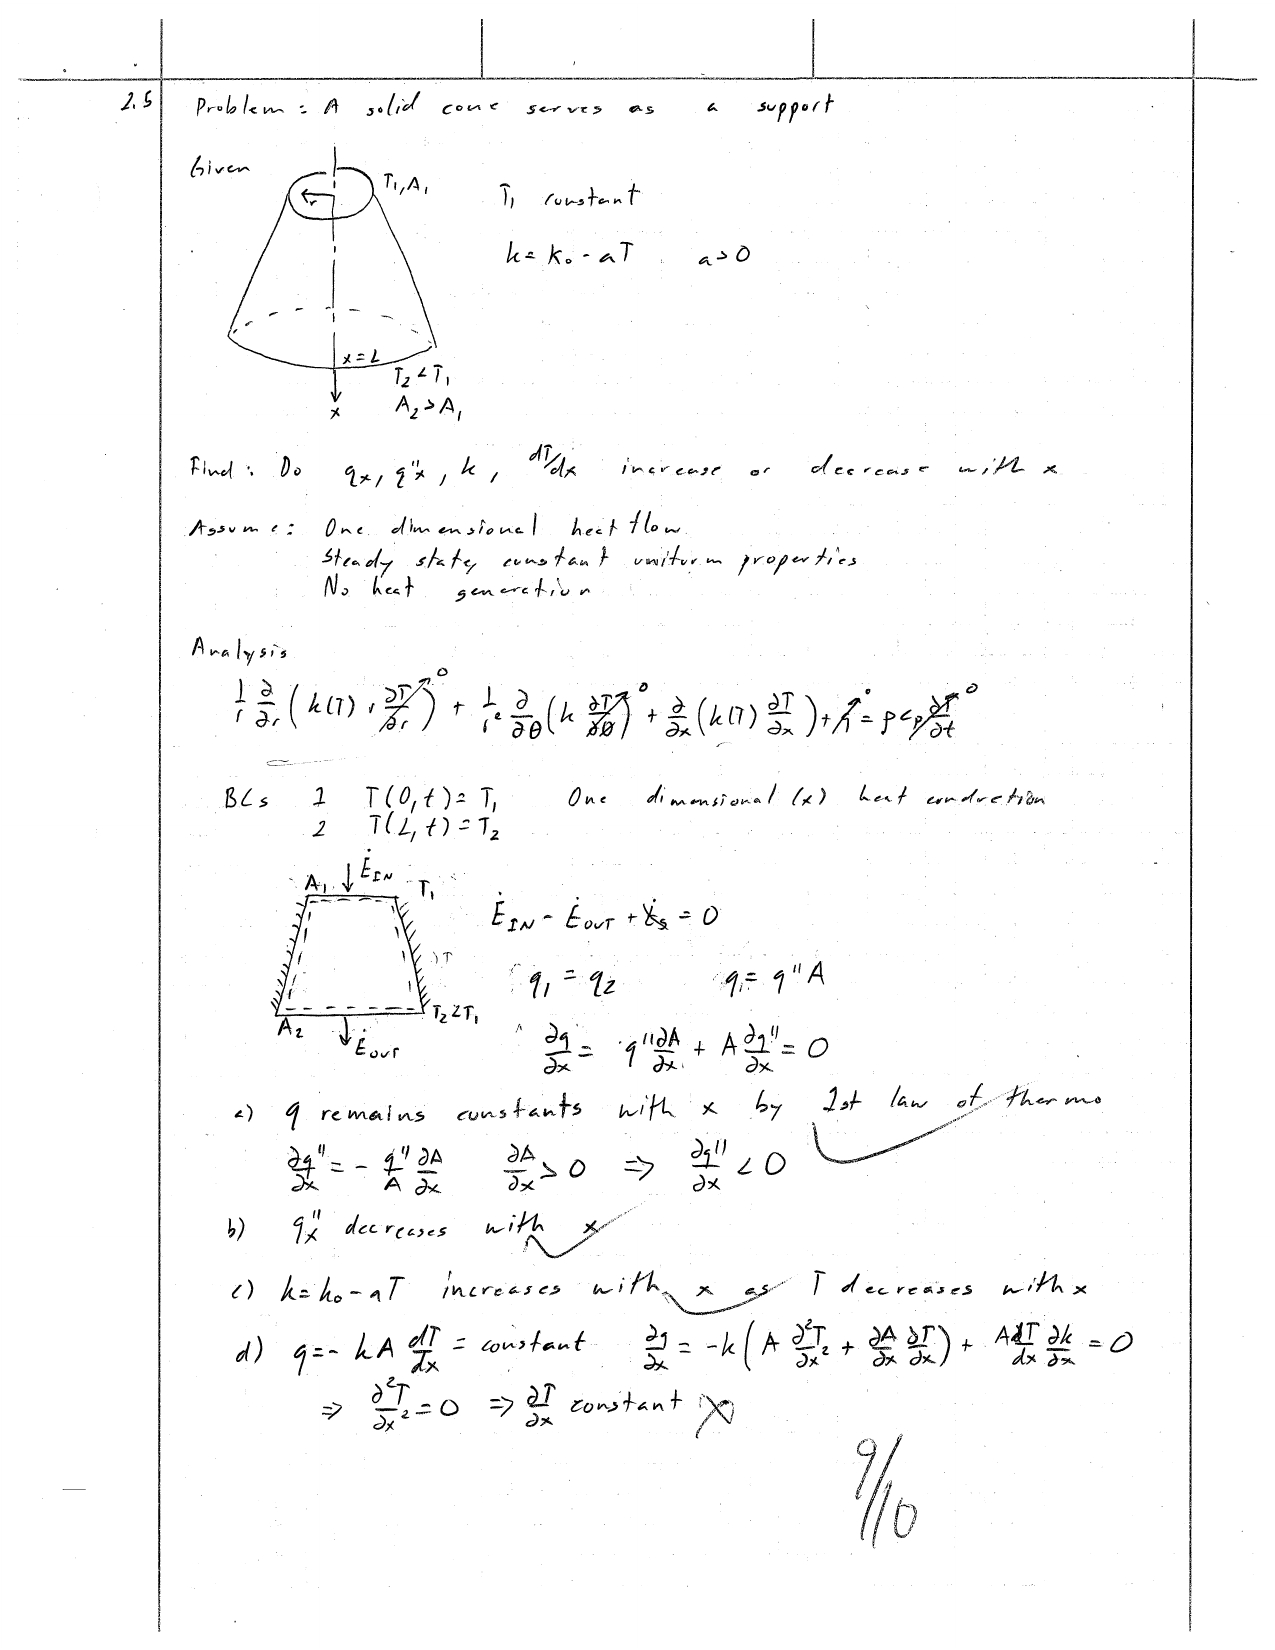 2.5 Problem: A solid cone serves as a support
Given
T₁, A₁
T₁ constant
r
k = k₀ - aT a > 0
x = L
T₂ < T₁
x A₂ > A₁
Find: Do qx, q"x, k, dT/dx increase or decrease with x
Assume: One dimensional heat flow
Steady state, constant uniform properties
No heat generation
Analysis
1/r ∂/∂r (k(T) r ∂T/∂r)⁰ + 1/r² ∂/∂θ (k ∂T/∂θ)⁰ + ∂/∂x (k(T) ∂T/∂x) + ṅ = ρ cp ∂T/∂t ⁰
BCs 1 T(0,t) = T₁ One dimensional (x) heat conduction
2 T(L,t) = T₂
A₁ Ė_IN T₁
Ė_IN - Ė_OUT + Ė_s = 0
q₁ = q₂ q₁ = q"A
A₂ Ė_OUT T₂ < T₁
∂q/∂x = q" ∂A/∂x + A ∂q"/∂x = 0
a) q remains constants with x by 1st law of thermo
∂q"/∂x = - q"/A ∂A/∂x ∂A/∂x > 0 ⇒ ∂q"/∂x < 0
b) q"x decreases with x
c) k = k₀ - aT increases with x as T decreases with x
d) q = - kA dT/dx = constant ∂q/∂x = -k (A ∂²T/∂x² + ∂A/∂x ∂T/∂x) + A dT/dx ∂k/∂x = 0
⇒ ∂²T/∂x² = 0 ⇒ ∂T/∂x constant X
9/10